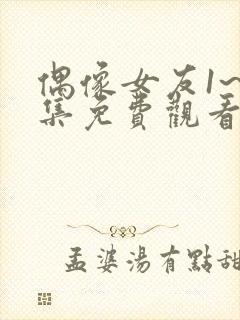 偶像女友1~
集免費觀看
孟婆湯有點甜